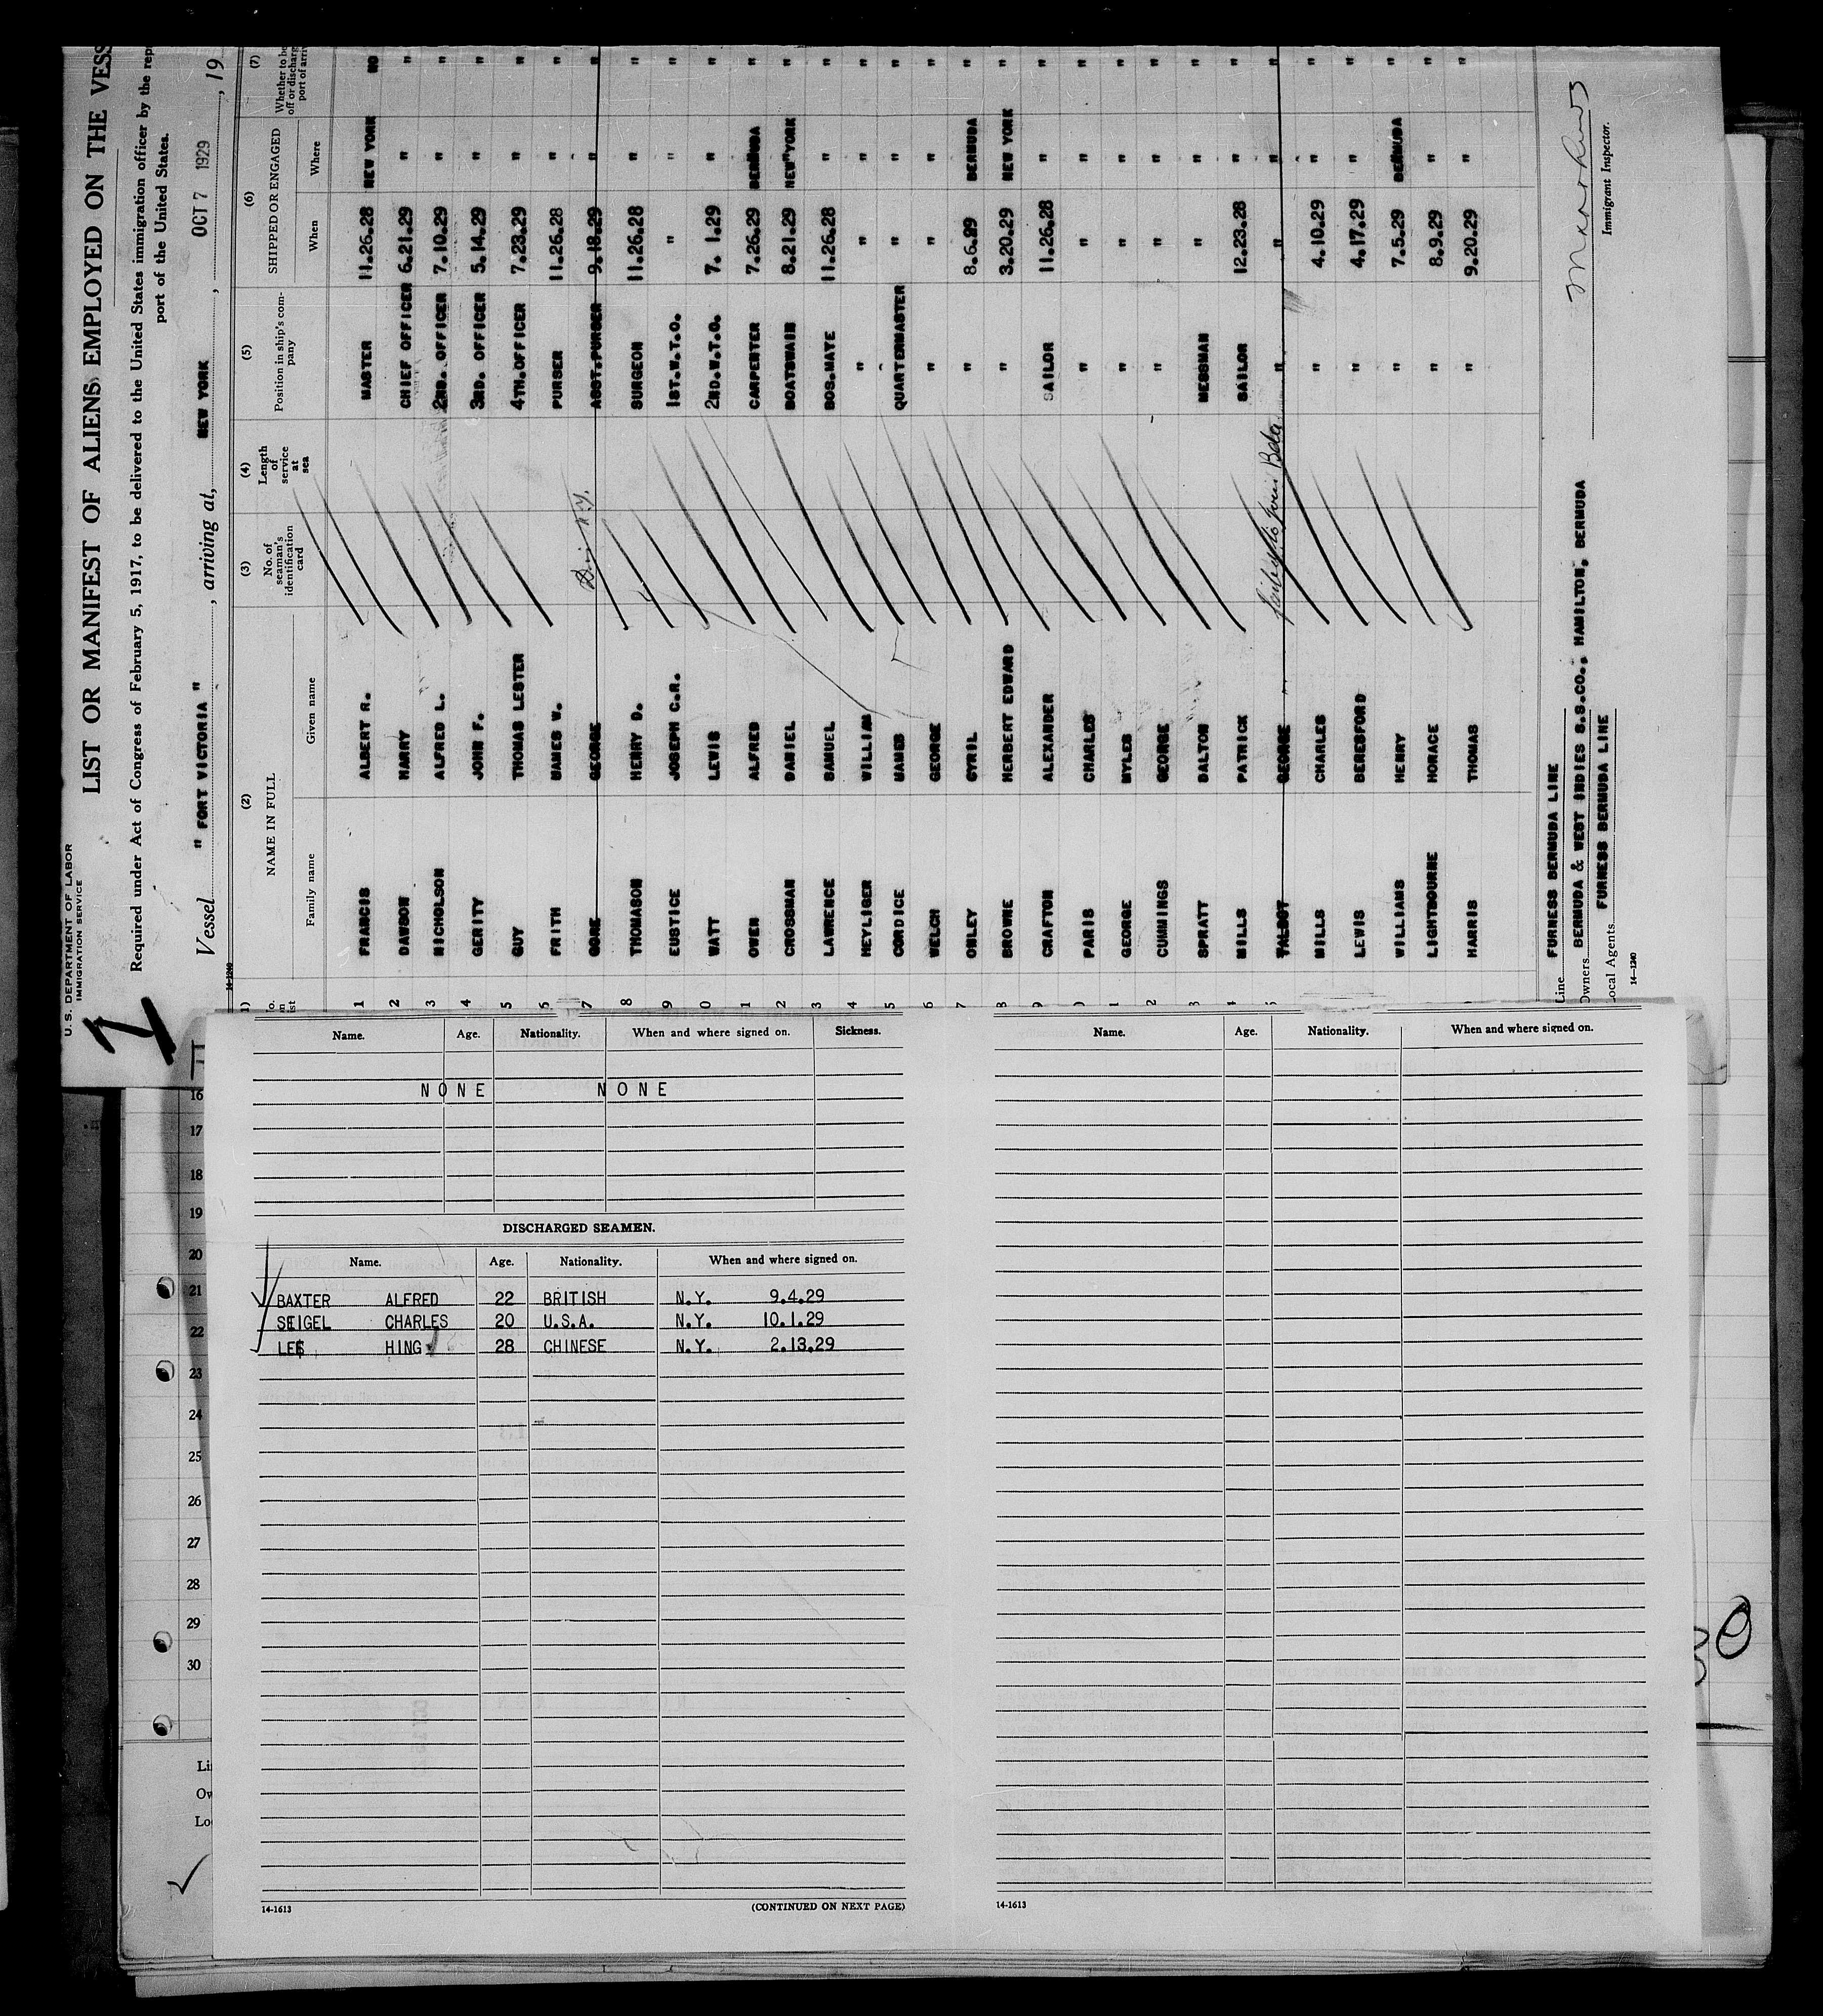 U.S. DEPARTMENT OF LABOR
IMMIGRATION SERVICE
LIST OR MANIFEST OF ALIENS EMPLOYED ON THE VESS
Required under Act of Congress of February 5, 1917, to be delivered to the United States immigration officer by the rep
port of the United States.
Vessel " FORT VICTORIA " , arriving at, NEW YORK , OCT 7 1929 , 19
14-1240
(1) (2) (3) (4) (5) (6) (7)
NAME IN FULL No. of seaman's identification card Length of service at sea Position in ship's com- pany SHIPPED OR ENGAGED Whether to be off or discharg port of arriv
Family name Given name When Where
1 FRANCIS ALBERT R. MASTER 11.26.28 NEW YORK NO
2 DAWSON HARRY CHIEF OFFICER 6.21.29 " "
3 NICHOLSON ALFRED L. 2ND. OFFICER 7.10.29 " "
4 GERITY JOHN F. 3RD. OFFICER 5.14.29 " "
5 GUY THOMAS LESTER 4TH.OFFICER 7.23.29 " "
6 FRITH JAMES W. PURSER 11.26.28 " "
7 GORE GEORGE N.Y. ASST.PURSER 9.18.29 " "
8 THOMASON HENRY D. SURGEON 11.26.28 " "
9 EUSTICE JOSEPH C.R. 1ST.W.T.O. " " "
0 WATT LEWIS 2ND.W.T.O. 7. 1.29 " "
1 OWEN ALFRED CARPENTER 7.26.29 BERMUDA "
2 CROSSMAN DANIEL BOATSWAIN 8.21.29 NEW YORK "
3 LAWRENCE SAMUEL BOS.MATE 11.26.28 " "
4 HEYLIGER WILLIAM " " " "
5 CORDICE JAMES QUARTERMASTER " " "
6 WELCH GEORGE " " " "
7 ONLEY CYRIL " 8.6.29 BERMUDA "
8 BROWNE HERBERT EDWARD " 3.20.29 NEW YORK "
9 CRAFTON ALEXANDER SAILOR 11.26.28 " "
0 PARIS CHARLES " " " "
1 GEORGE MYLES " " " "
2 CUMMINGS GEORGE " " " "
3 SPRATT DALTON MESSMAN " " "
4 MILLS PATRICK SAILOR 12.23.28 " "
5 TALBOT GEORGE " " " "
MILLS CHARLES " 4.10.29 " "
LEWIS BERESFORD " 4.17.29 " "
WILLIAMS HENRY " 7.5.29 BERMUDA "
LIGHTBOURNE HORACE " 8.9.29 " "
HARRIS THOMAS " 9.20.29 " "
Line FURNESS BERMUDA LINE
Owners BERMUDA & WEST INDIES S.S.CO., HAMILTON, BERMUDA
Local Agents FURNESS BERMUDA LINE
Immigrant Inspector.
14-1240
Name. Age. Nationality. When and where signed on. Sickness.
NONE NONE
DISCHARGED SEAMEN.
Name. Age. Nationality. When and where signed on.
BAXTER ALFRED 22 BRITISH N.Y. 9.4.29
SEIGEL CHARLES 20 U.S.A. N.Y. 10.1.29
LEE HING 28 CHINESE N.Y. 2.13.29
14-1613 (CONTINUED ON NEXT PAGE)
Name. Age. Nationality. When and where signed on.
14-1613
16
17
18
19
20
21
22
23
24
25
26
27
28
29
30
Li
Ow
Lo